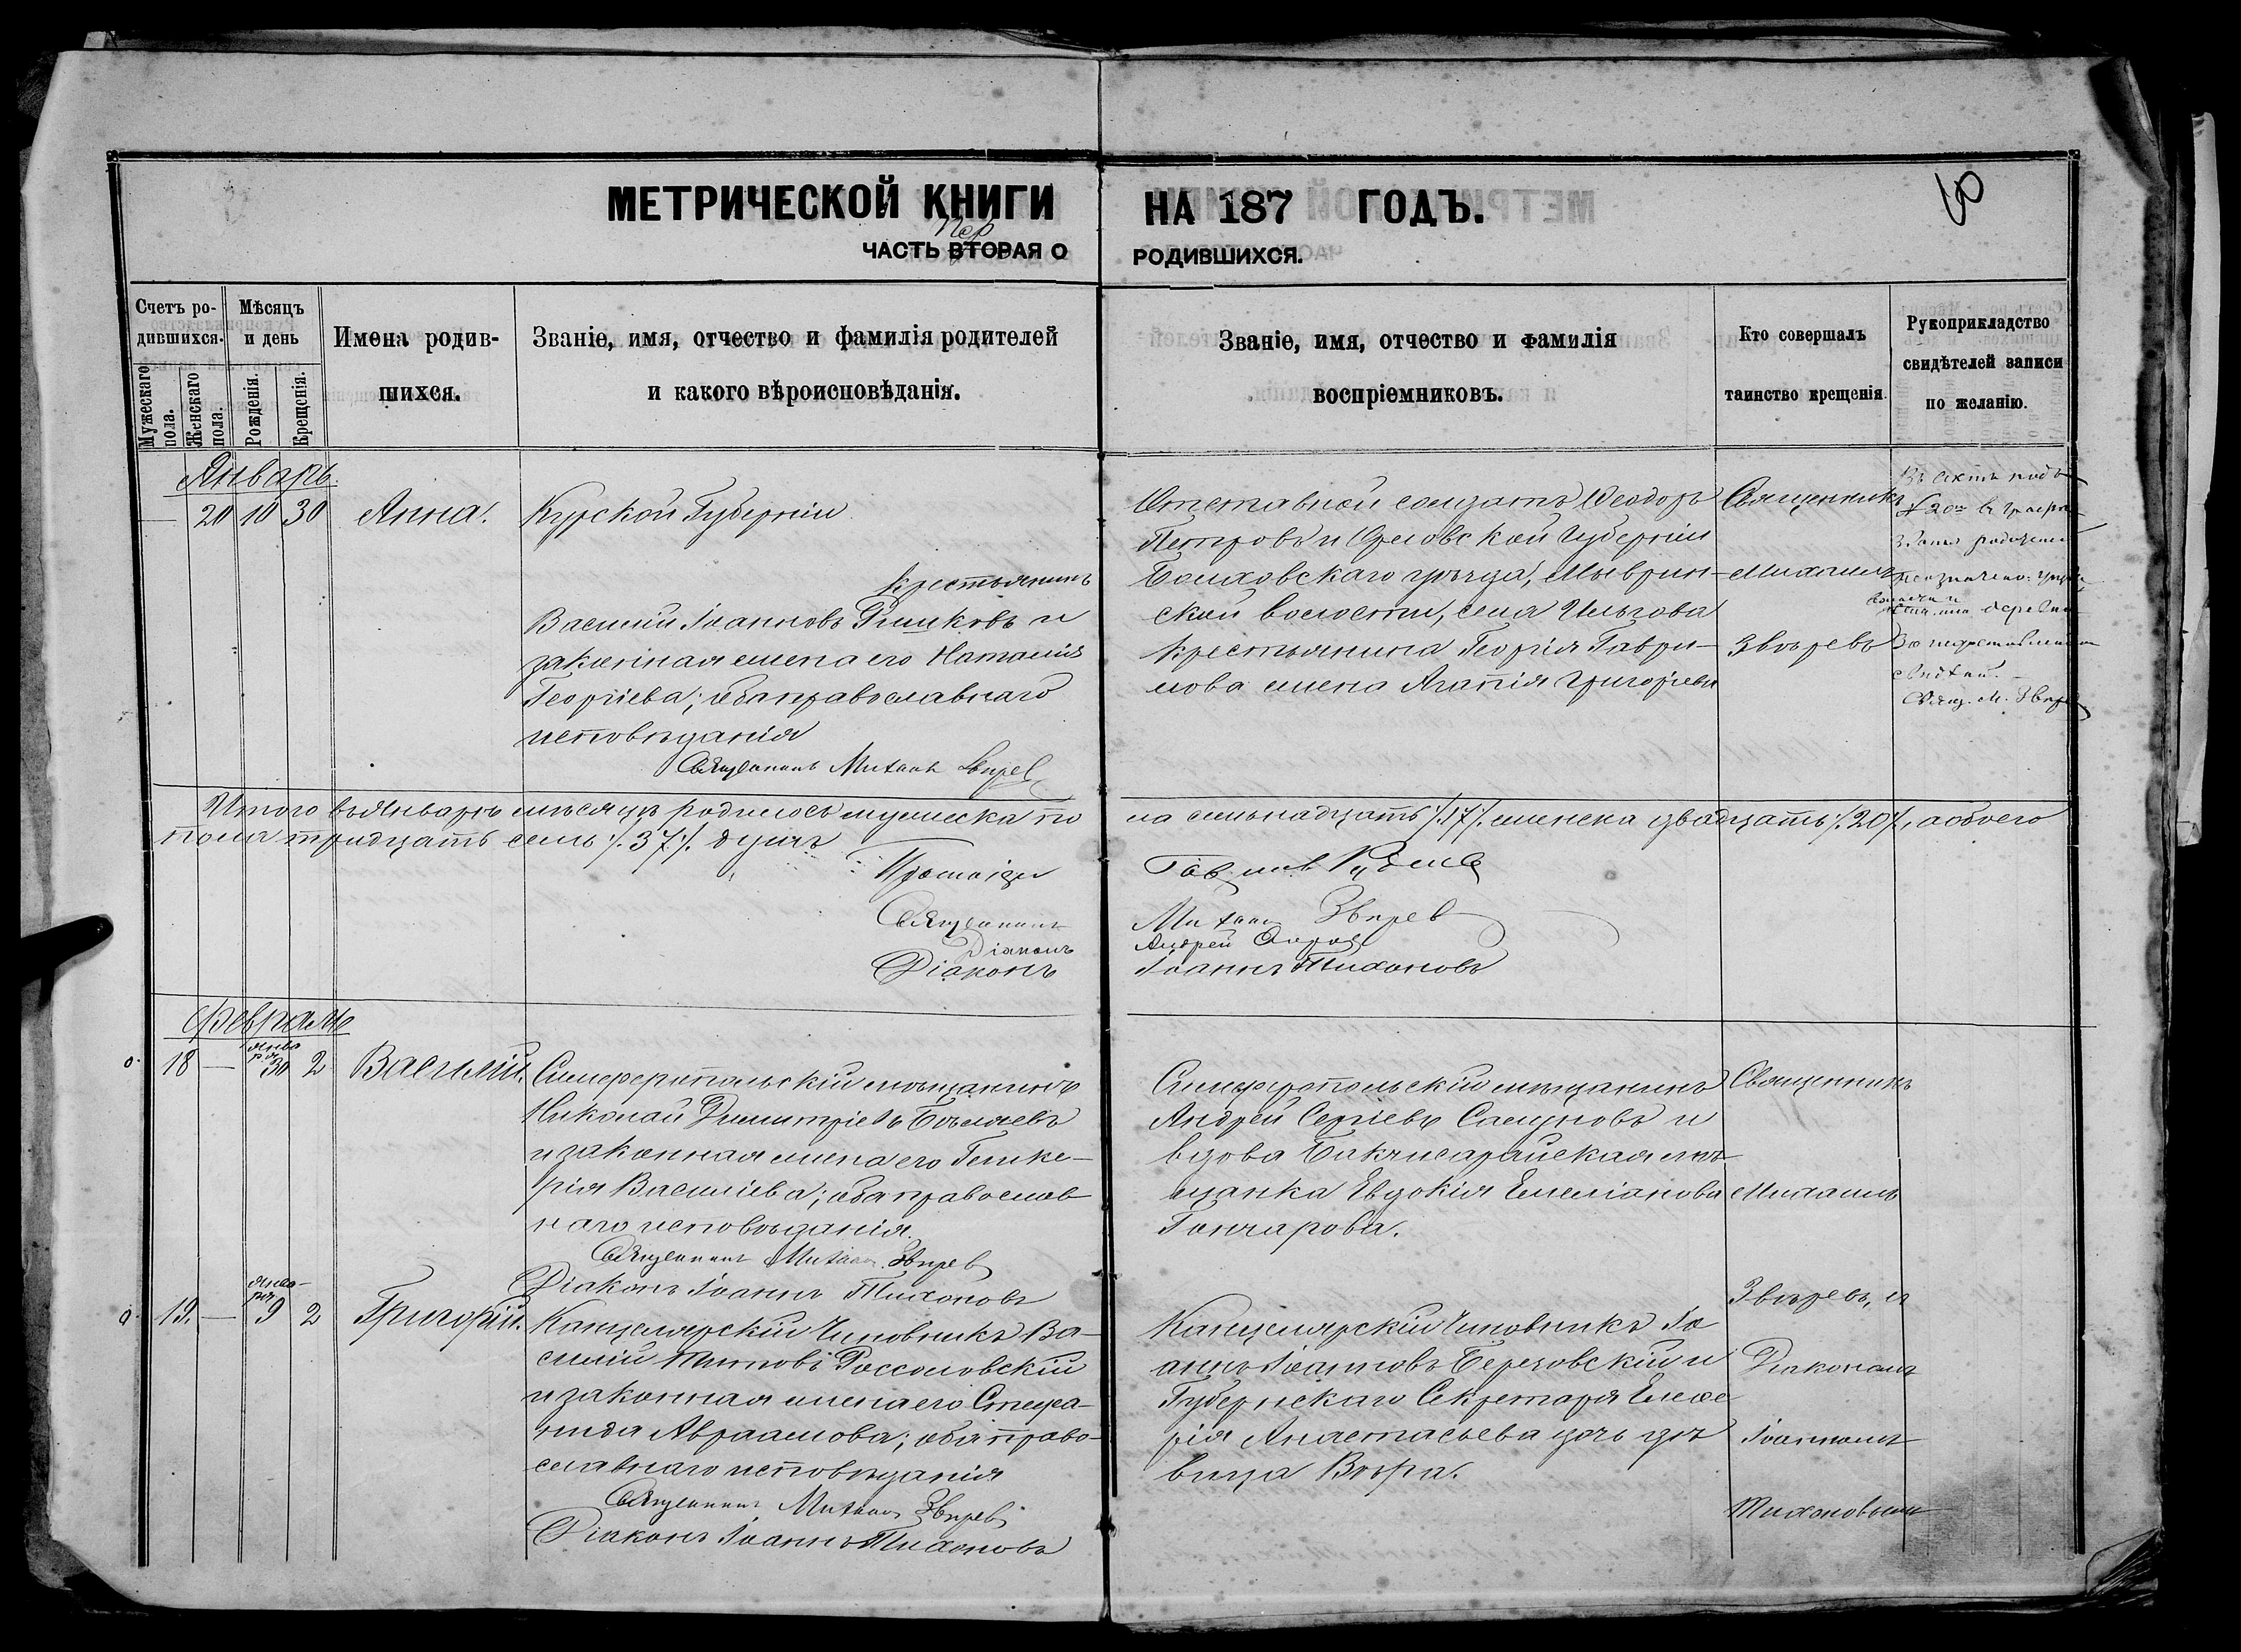 МЕТРИЧЕСКОЙ КНИГИ НА 187 ГОДЪ.
Пер
ЧАСТЬ ВТОРАЯ О РОДИВШИХСЯ.
Счетъ ро-
дившихся.
Мужескаго пола.
Женскаго пола.
Мѣсяцъ
и день
Рожденія.
Крещенія.
Имена родив-
шихся.
Званіе, имя, отчество и фамилія родителей
и какого вѣроисповѣданія.
Званіе, имя, отчество и фамилія
воспріемниковъ.
Кто совершалъ
таинство крещенія.
Рукоприкладство
свидѣтелей записи
по желанію.
Январь.
— 20 10 30 Анна.
Курской Губерніи
крестьянинъ
Василій Іоанновъ и
законная жена его Наталія
Георгіева; оба православнаго
исповѣданія
Священникъ Михаилъ Звѣрев
Отставной солдатъ Ѳеодоръ
Петровъ и Орловской Губерніи
Болховскаго уѣзда,
ской волости, села
крестьянина Георгія Гаври-
лова жена Агапія Григорьева
Священникъ
Михаилъ
Звѣревъ
Въ актѣ подъ
№ 20 въ графѣ
званія родителей
деревни
Свящ. М. Звѣрев
Итого въ Январѣ мѣсяцѣ родилось мужеска по
ла семьнадцать /.17/. женска двадцать /.20/., а обоего
пола тридцать семь /.37/. душъ
Священникъ Михаилъ Звѣрев
Діаконъ Андрей
Діаконъ Іоаннъ Тихоновъ
Февраль
18 — янва
ря 30 2 Василій.
Симферопольскій мѣщанинъ
Николай Димитріевъ Бѣляевъ
и законная жена его Глике-
рія Василіева; оба православ
наго исповѣданія.
Священникъ Михаил Звѣрев
Діаконъ Іоаннъ Тихоновъ
Симферопольскій мѣщанинъ
Андрей Сергіевъ и
вдова Бахчисарайская мѣ-
щанка Евдокія Емеліанова
Гончарова.
Священникъ
Михаилъ
Звѣревъ, съ
Діакономъ
Іоанномъ
Тихоновымъ
19. — янва-
ря 9 2 Григорій.
Канцелярскій Чиновникъ Ва-
силій Титовъ Россоловскій
и законная жена его Стефа-
нида Авраамова; оба право-
славнаго исповѣданія
Священникъ Михаил Звѣрев
Діаконъ Іоаннъ Тихоновъ
Канцелярскій Чиновникъ Іо
аннъ Іоанновъ Березовскій и
Губернскаго Секретаря Елев
рія Анастасьева дочь дѣ
вица Вѣра.